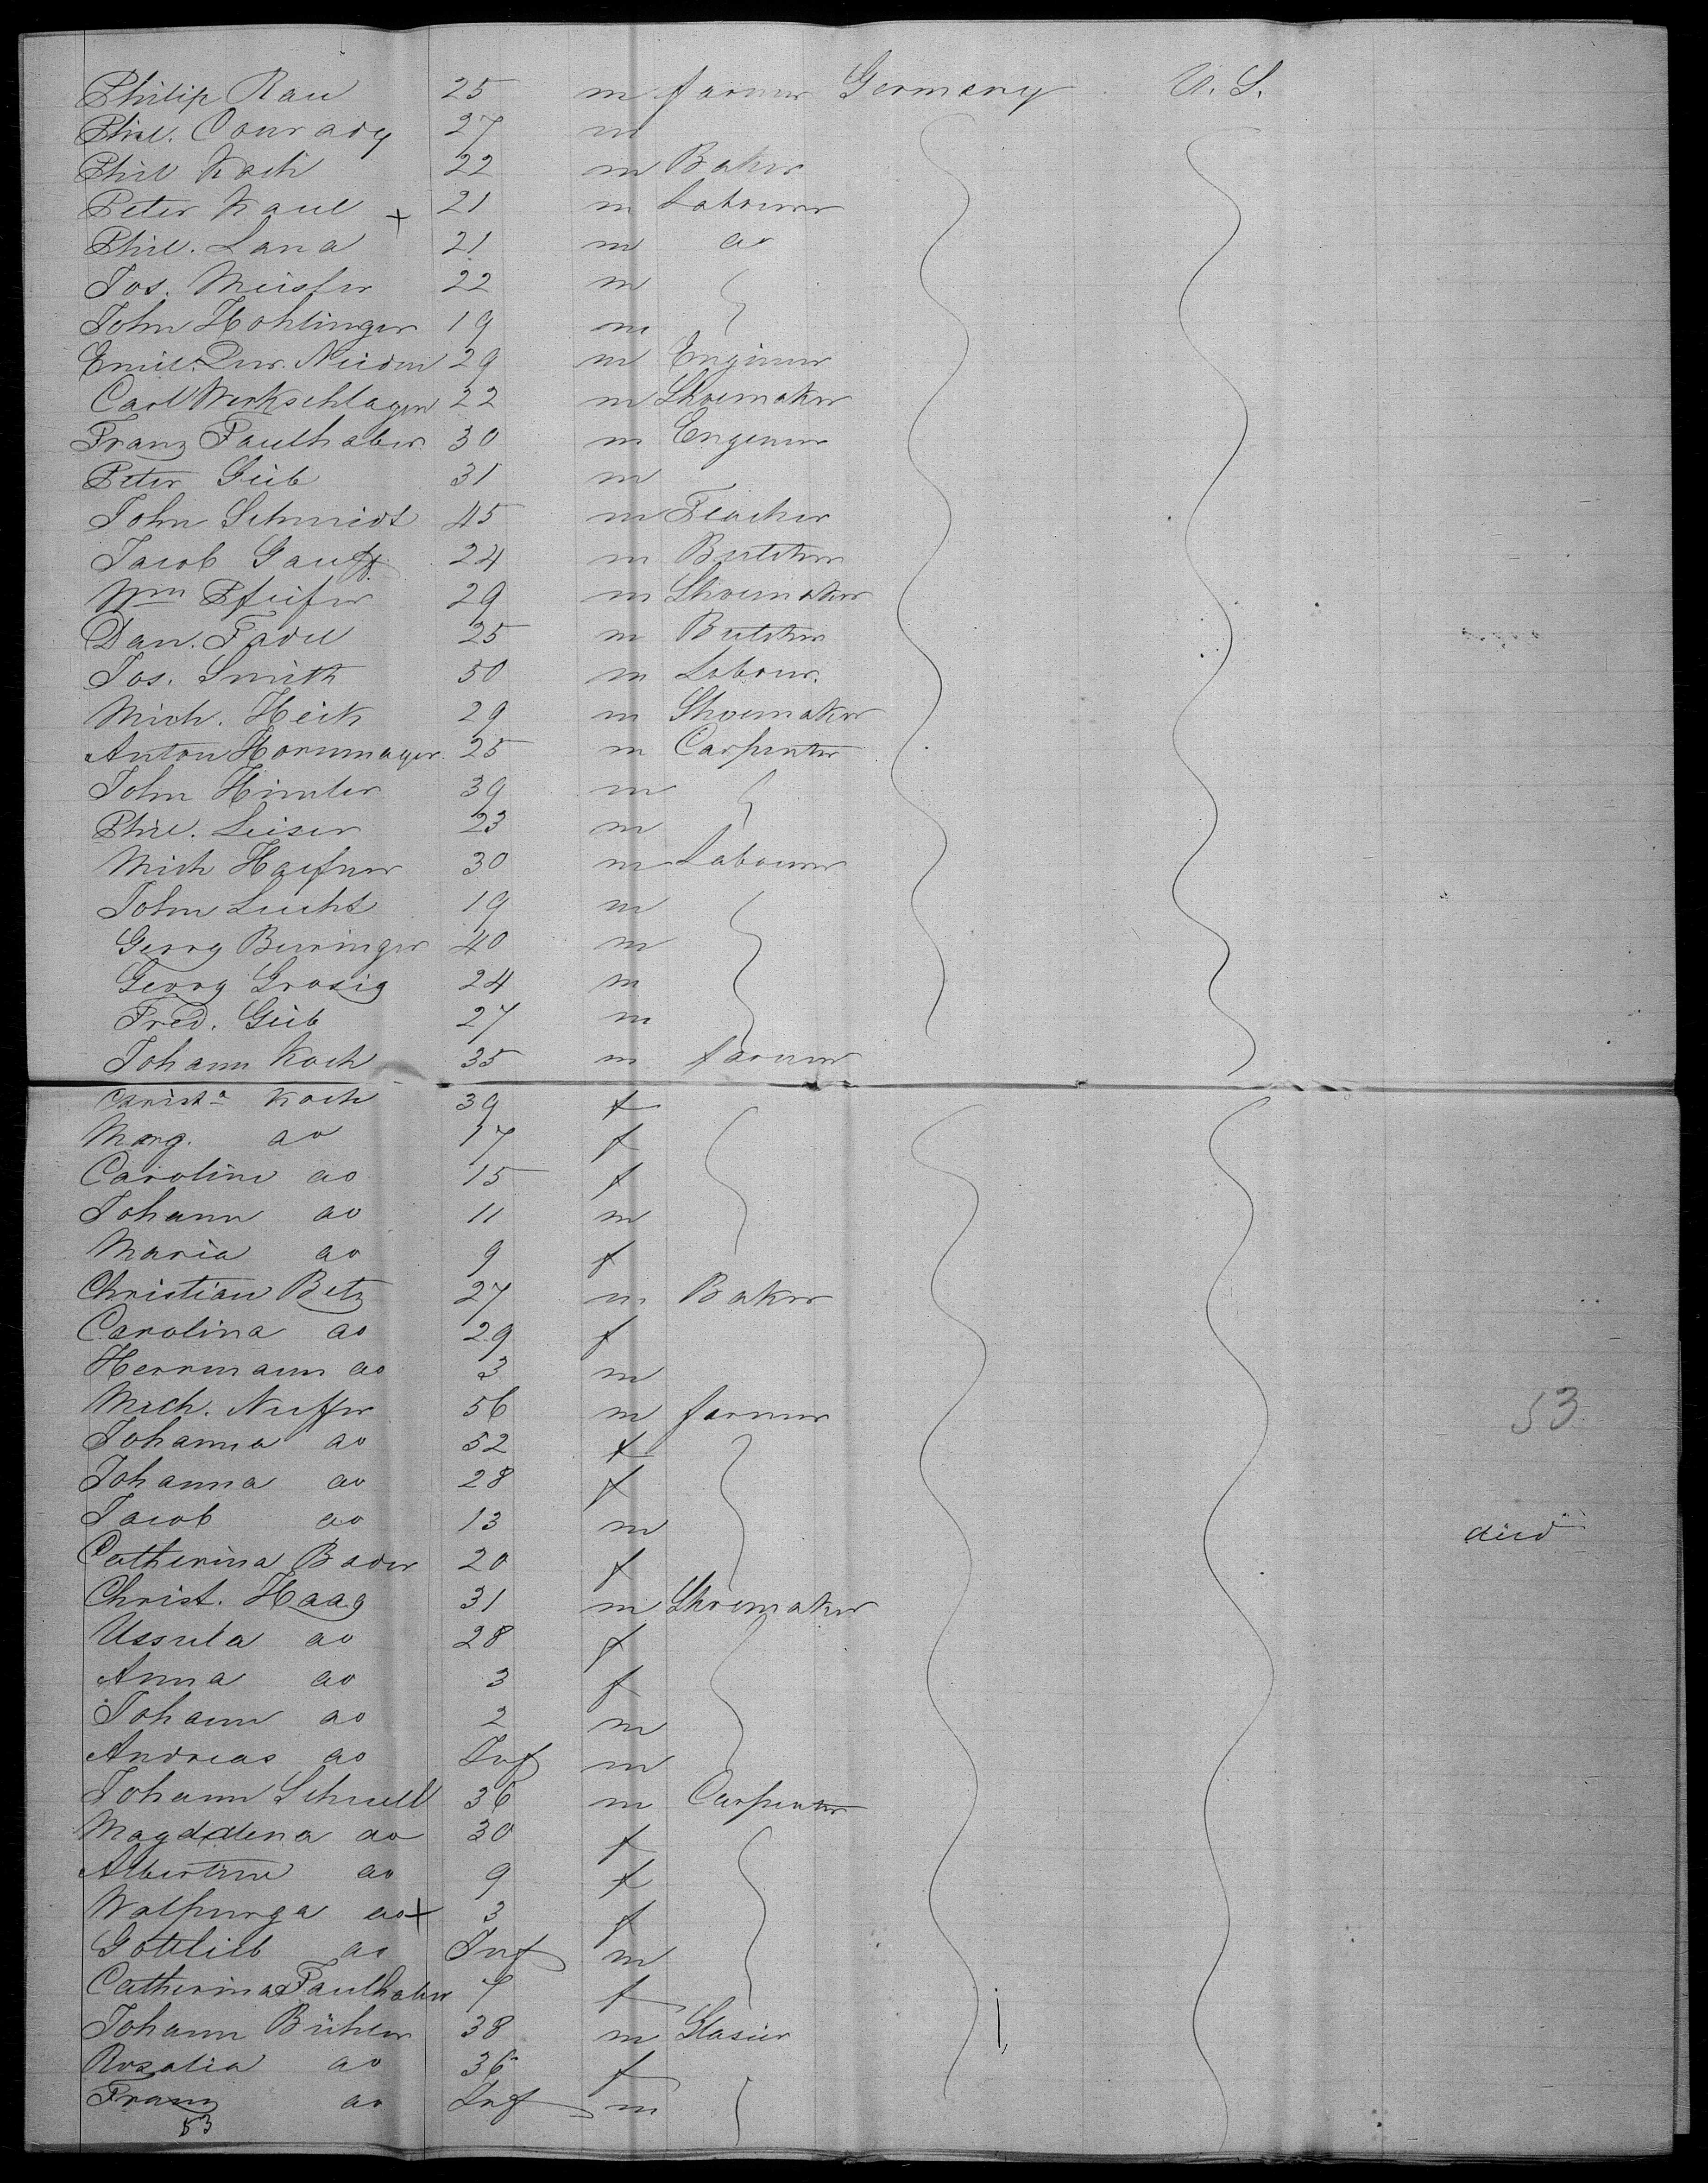 Philip Rau 25 m farmer Germany U. S.
Phil. Conrady 27 m
Phil Koch 22 m Baker
Peter Kaul + 21 m Labourer
Phil. Lana 21 m do
Jos. Meister 22 m
John Hohlinger 19 m
Emil Zur. Nieden 29 m Engineer
Carl Werkschlager 22 m Shoemaker
Franz Faulhaber 30 m Engeneer
Peter Geib 31 m
John Schmidt 45 m Teacher
Jacob Gauff 24 m Butcher
Wm Pfeifer 29 m Shoemaker
Dan. Fadel 25 m Butcher
Jos. Smith 50 m Labour.
Mich. Heik 29 m Shoemaker
Anton Hornmayer 25 m Carpenter
John Himler 39 m
Phil. Leiser 23 m
Mich Hafner 30 m Labourer
John Lucht 19 m
Georg Beringer 40 m
Georg Grosig 24 m
Fred. Geib 27 m
Johann Koch 35 m farmer
Christa Koch 39 f
Marg. do 17 f
Caroline do 15 f
Johann do 11 m
Maria do 9 f
Christian Betz 27 m Baker
Carolina do 29 f
Herrmann do 3 m
Mich. Neiffer 56 m farmer 53
Johanna do 52 f
Johanna do 28 f
Jacob do 13 m died
Catherina Bader 20 f
Christ. Haag 31 m Shoemaker
Ussula do 28 f
Anna do 3 f
Johann do 2 m
Andreas do Inf m
Johann Schnell 36 m Carpenter
Magdalena do 30 f
Albertine do 9 f
Walpurga do + 3 f
Gottlieb do Inf m
Catherina Faulhaber 7 f
Johann Bühler 38 m Glasier
Rosalia do 36 f
Franz do Inf m
53